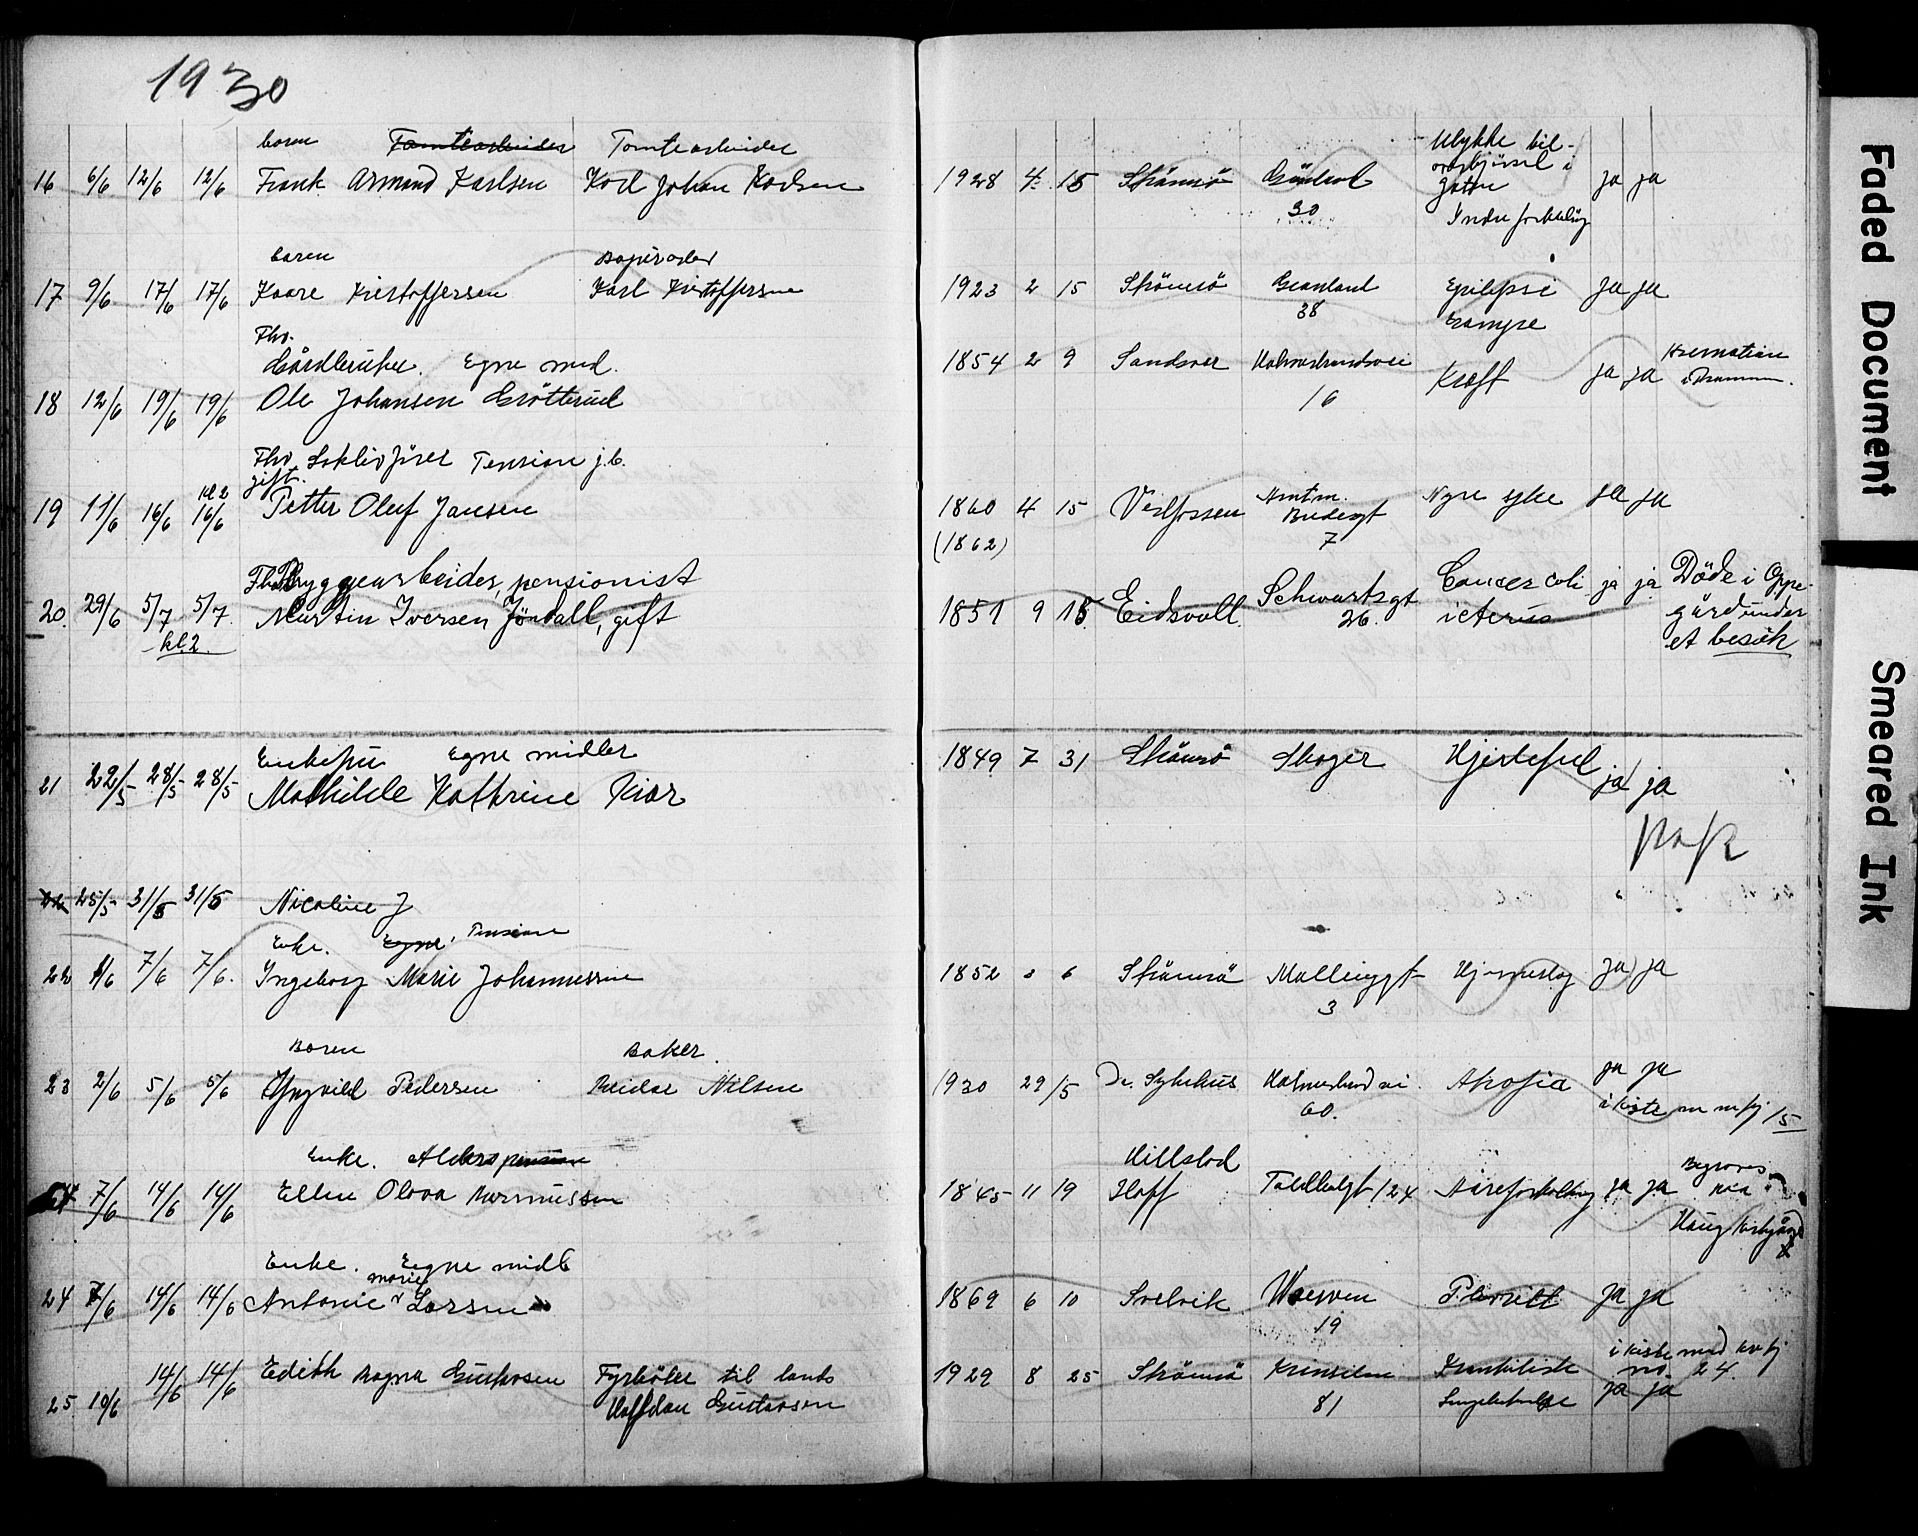 1930
baren Tomtearbeider Tomtearbeider
16 6/6 12/6 12/6 Frank Armand Karlsen Karl Johan Karlsen 1928 4 15 Strömsö 30 Ulykke bil- i gaten ja ja
Indre
baren
17 9/6 17/6 17/6 Kaare Kristoffersen Karl Kristoffersen 1923 2 15 Strömsö Grønland 38 Epilepsi Krampe ja ja
Fhv.
Gårdbruker. Egne mid.
18 12/6 19/6 19/6 Ole Johansen Gröttrud 1854 2 9 Sandsvær Holmestrandsvei 16 Kræft ja ja Kremation i Drammen.
Fhv. Lokfører Pension j.b.
gift.
19 11/6 16/6 kl 2 16/6 Petter Oluf Jansen 1860 4 15 Vestfossen Amtm. 7 Nyre syke ja ja
(1862)
Fhv. Bryggearbeider, pensionist
20. 29/6 5/7 5/7. Martin Iversen Jöndall, gift 1851 9 15 Eidsvoll. Schwartsgt 26. Cancer coli icterus ja ja Döde i Oppegård under et besök
kl. 2
Enkefru Egne midler
21 22/5 28/5 28/5 Mathilde Kathrine Kiær 1849 7 31 Strömsö Skoger Hjertefeil ja ja
22 25/5 31/5 31/5 Nicoline J
Enke. Egne. Pension
22 1/6 7/6 7/6. Ingeborg Marie Johannessen 1852 6 Strömsö Mallinggt 3 Hjerneslag ja ja
Baren Baker.
23 2/6 5/6 5/6 Pedersen Reidar Nilsen 1930 29/5 Dr. Sykehus 60. ja ja
i kiste m 15
Enke. Alderspension
24 7/6 14/6 14/6 Ellen Olava Rasmussen 1845 11 19 Hillestad Hoff Tollbodgt 24 Åreforkalkning ja ja Begraves paa Haug kirkegård
Enke. Egne midl
24 7/6 14/6 14/6 Antonie Marie Larsen 1869 6 10 Svelvik 19 Pleurit ja ja
25 10/6 14/6 14/6 Edith Ragna Gustavsen Fyrböter til lands Halfdan Gustavsen 1929 8 25 Strömsö 81 ja ja
i kiste med no. 24.
Faded Document
Smeared Ink